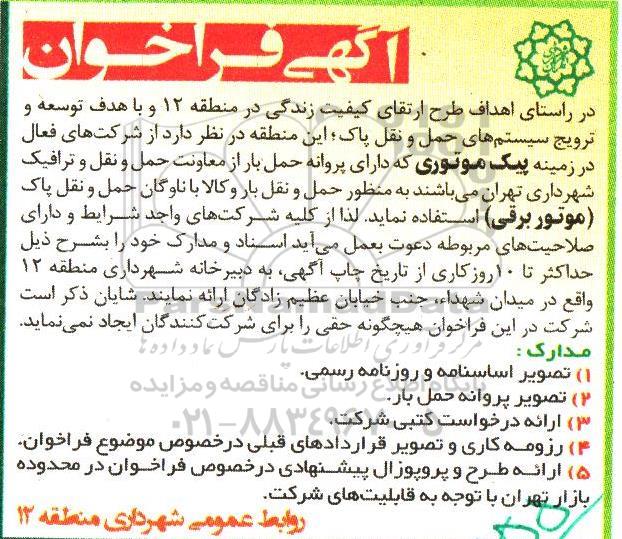 آگهی فراخوان
در راستای اهداف طرح ارتقای کیفیت زندگی در منطقه ۱۲ و با هدف توسعه و
ترویج سیستم‌های حمل و نقل پاک؛ این منطقه در نظر دارد از شرکت‌های فعال
در زمینه پیک موتوری که دارای پروانه حمل بار از معاونت حمل و نقل و ترافیک
شهرداری تهران می‌باشند به منظور حمل و نقل بار و کالا با ناوگان حمل و نقل پاک
(موتور برقی) استفاده نماید. لذا از کلیه شرکت‌های واجد شرایط و دارای
صلاحیت‌های مربوطه دعوت بعمل می‌آید اسناد و مدارک خود را بشرح ذیل
حداکثر تا ۱۰ روز کاری از تاریخ چاپ آگهی، به دبیرخانه شهرداری منطقه ۱۲
واقع در میدان شهداء، جنب خیابان عظیم زادگان ارائه نمایند. شایان ذکر است
شرکت در این فراخوان هیچگونه حقی را برای شرکت‌کنندگان ایجاد نمی‌نماید.
مدارک:
۱) تصویر اساسنامه و روزنامه رسمی.
۲) تصویر پروانه حمل بار.
۳) ارائه درخواست کتبی شرکت.
۴) رزومه کاری و تصویر قراردادهای قبلی درخصوص موضوع فراخوان.
۵) ارائه طرح و پروپوزال پیشنهادی درخصوص فراخوان در محدوده
بازار تهران با توجه به قابلیت‌های شرکت.
روابط عمومی شهرداری منطقه ۱۲
ParsNamadData
مرکز فرآوری اطلاعات پارس نماد داده‌ها
پایگاه اطلاع رسانی مناقصه و مزایده